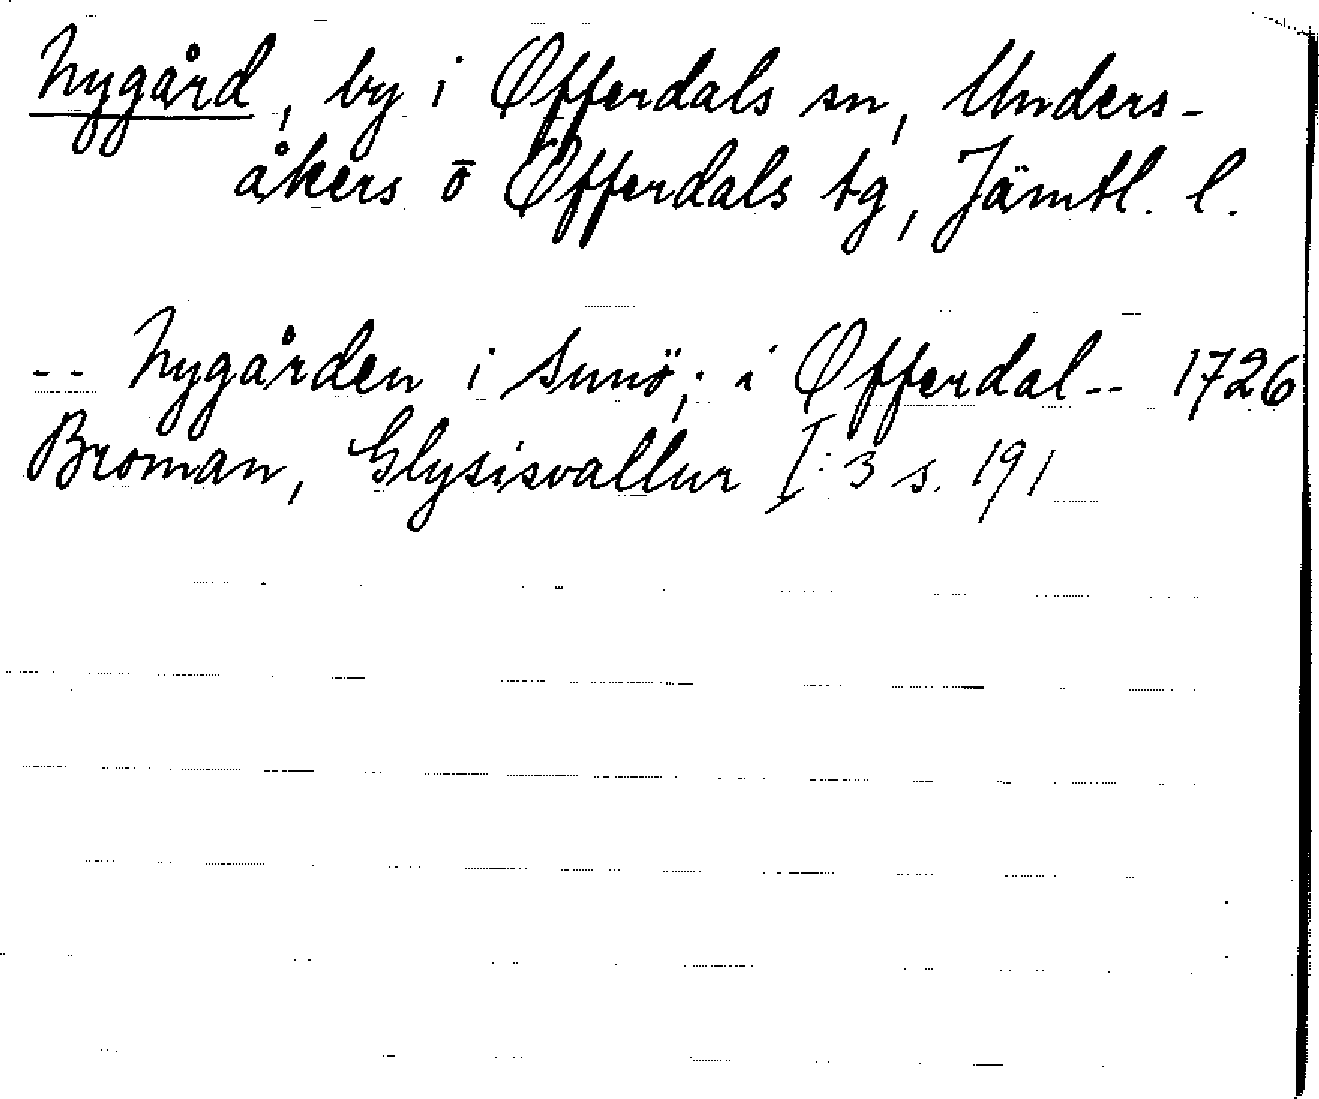 Nygård, by i Offerdals sn, Unders-
åkers o Offerdals tg, Jämtl. l.
-- Nygården i Sunö; i Offerdal -- 1726
Broman, Glysisvallur I:3 s. 191